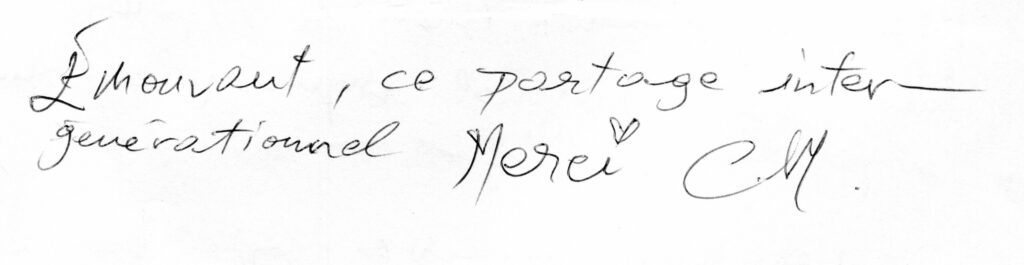 Émouvant, ce partage inter-
générationnel Merci C.M.